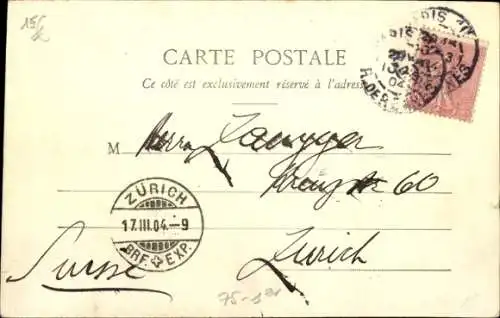 CARTE POSTALE
Ce côté est exclusivement réservé à l'adresse
M Herrn Zangger
Kreuzstr 60
Zürich
Suisse
ZÜRICH
17.III.04.-9
BRF. EXP.
PARIS
04
75-